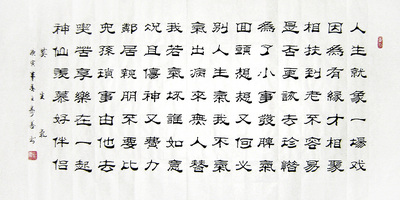 人生就象一場戲
因為有緣才相聚
相扶到老不容易
是否更該去珍惜
為了小事發脾氣
回頭想想又何必
別人生氣我不氣
氣出病來無人替
我若氣壞誰如意
況且傷神又費力
鄰居親朋不要比
兒孫瑣事由他去
苦享樂在一起
神仙羨慕好伴侶
莫生氣
庚寅年春月